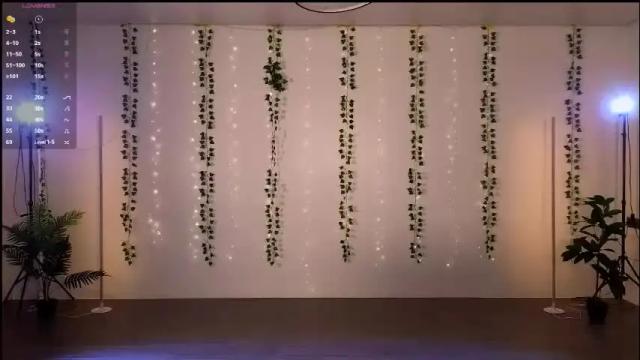 LOVENSE
2~3 1s
4~10 2s
11~50 5s
51~100 10s
≥101 15s
22 20s
33 30s
44
55 50s
69 Level 1-5